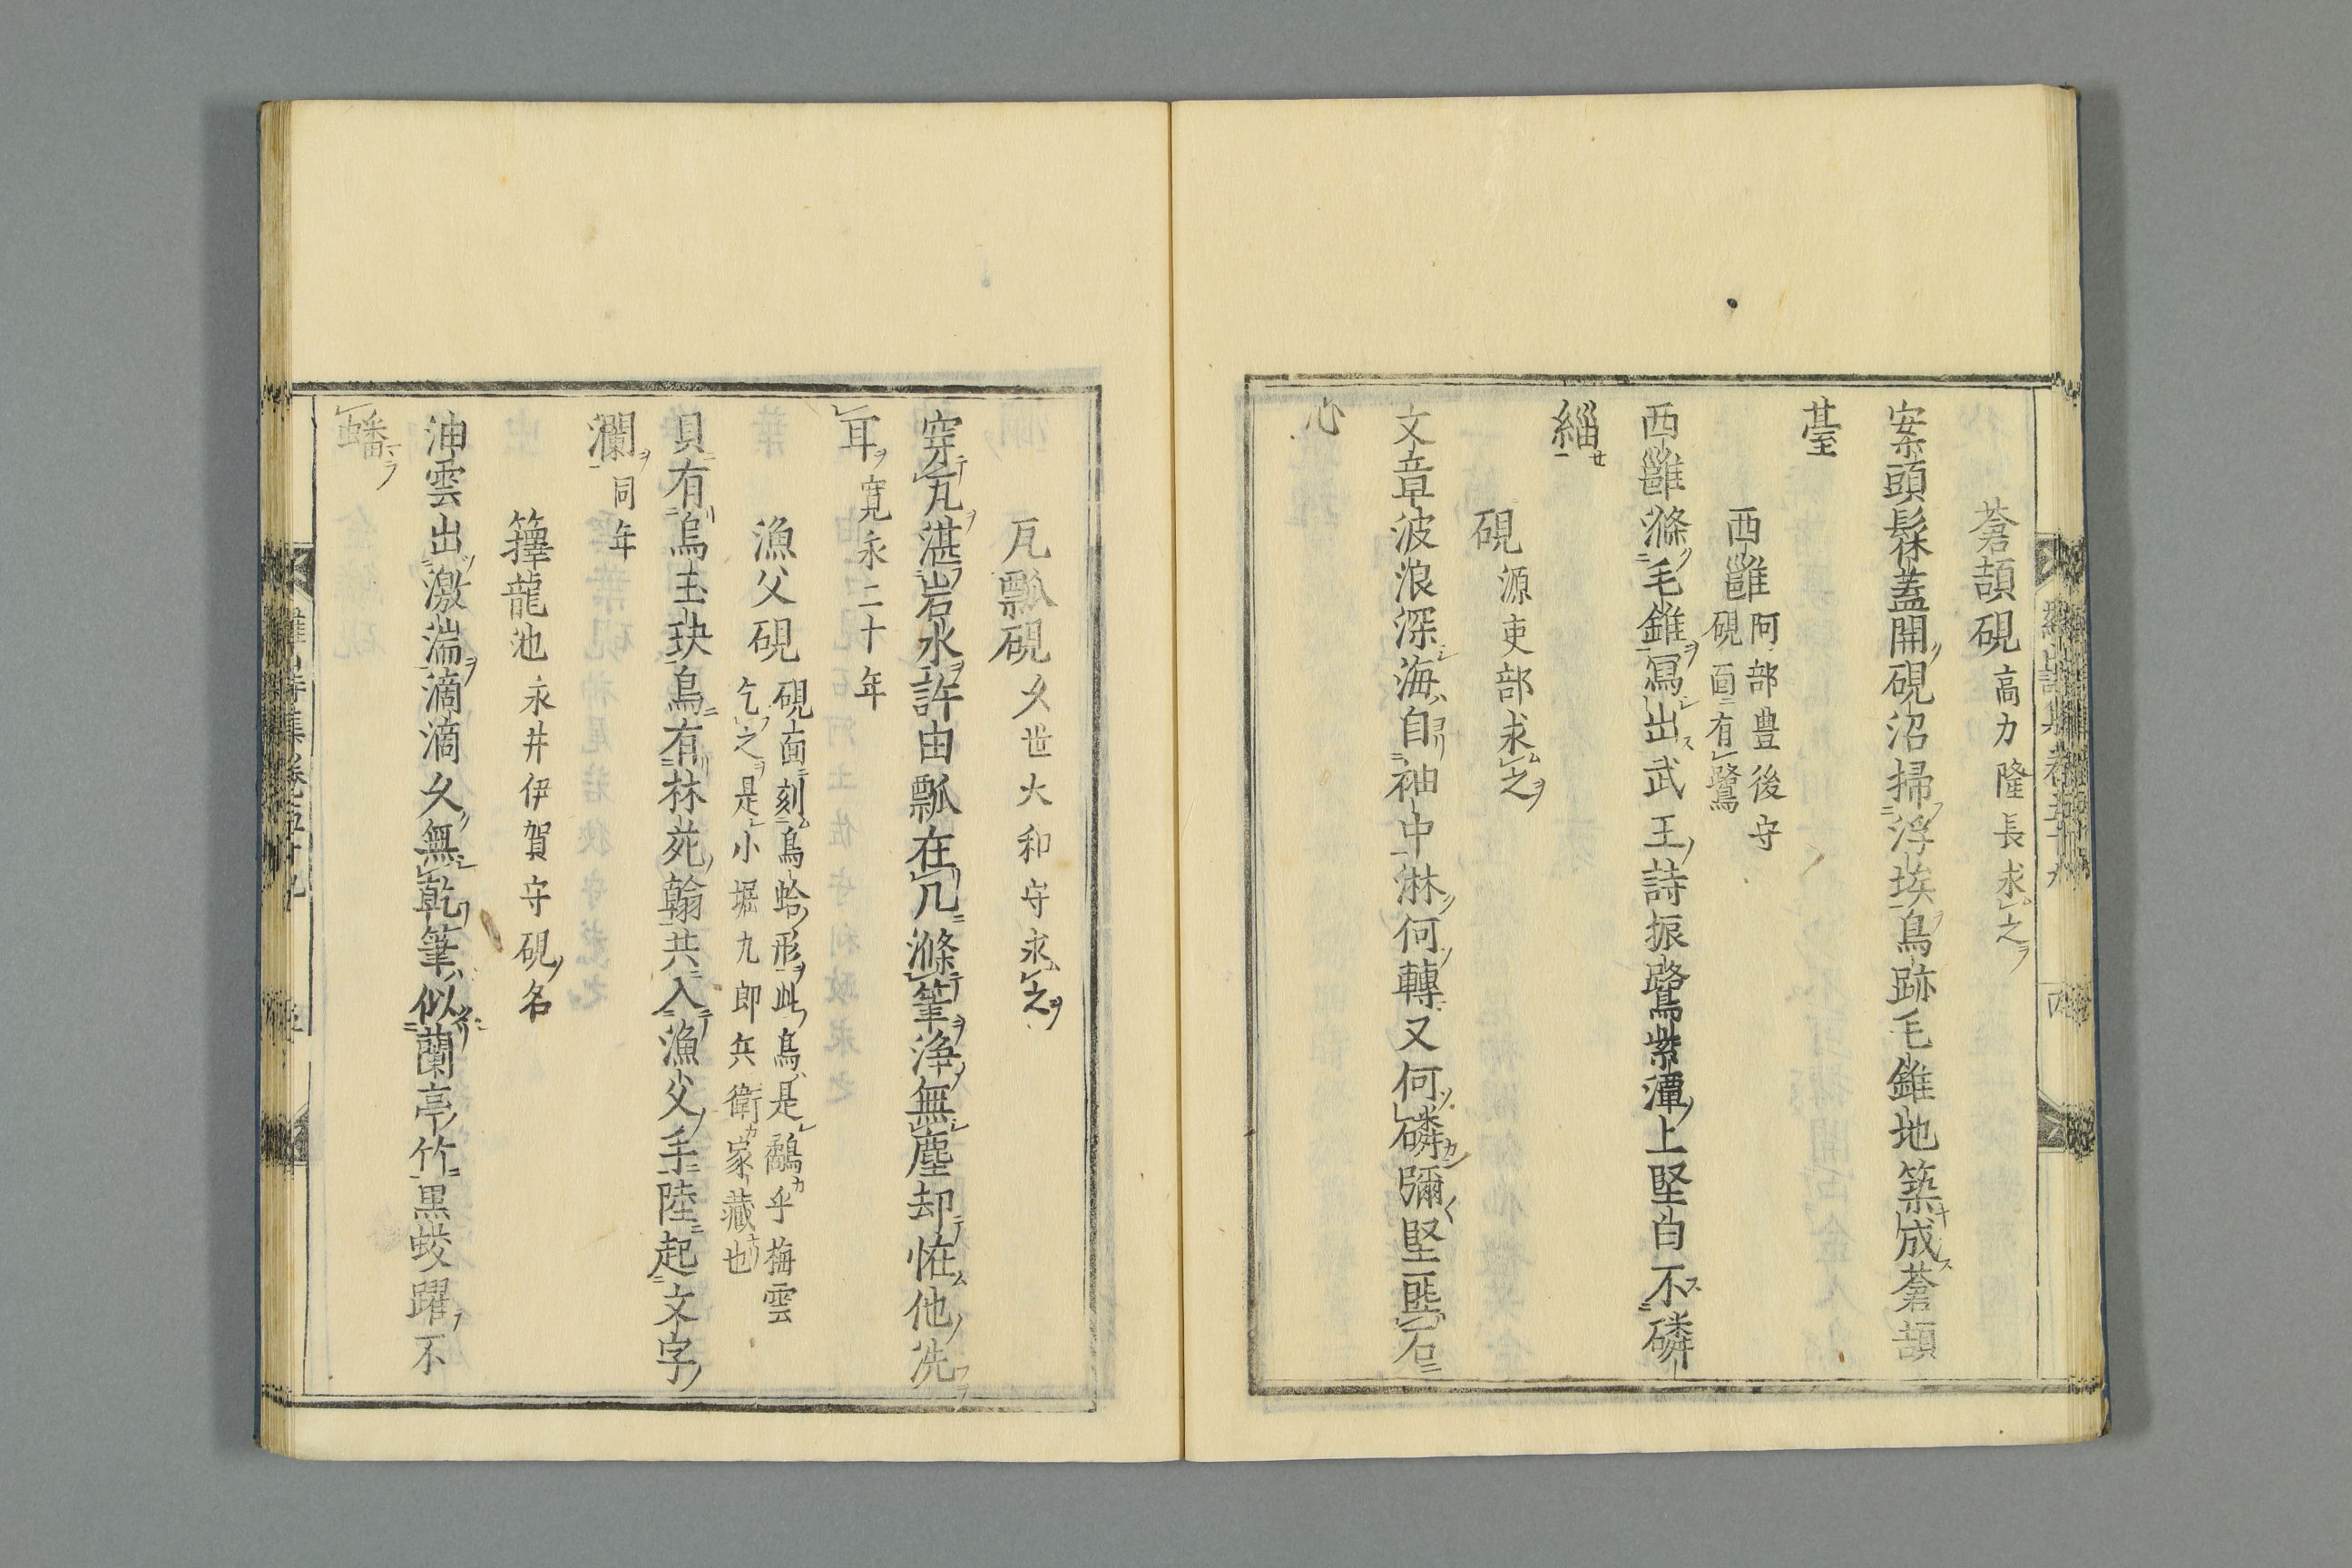 蒼頡硯 高力隆長求之
案頭髹蓋開硯沼掃浮埃鳥跡毛錐地築成蒼頡
臺
西雝 阿部豊後守
硯面有鷺
西雝滌毛錐寫出武王詩振鷺紫潭上堅白不磷
緇
硯 源吏部求之
文章波浪深海自袖中淋何轉又何磷彌堅匪石
心
瓦瓢硯 久世大和守求之
穿瓦湛岩水許由瓢在几滌筆浄無塵却恠他洗
耳 寛永二十年
漁父硯 硯面刻鳥蛤形此鳥是鷸乎梅雲
乞之是小堀九郎兵衛家藏也
貝有烏玉玦鳥有林苑翰共入漁父手陸起文字
瀾 同年
籜龍池 永井伊賀守硯名
油雲出激湍滴滴久無乾筆似蘭亭竹黒蛟躍不
蟠
羅山詩集卷五十九